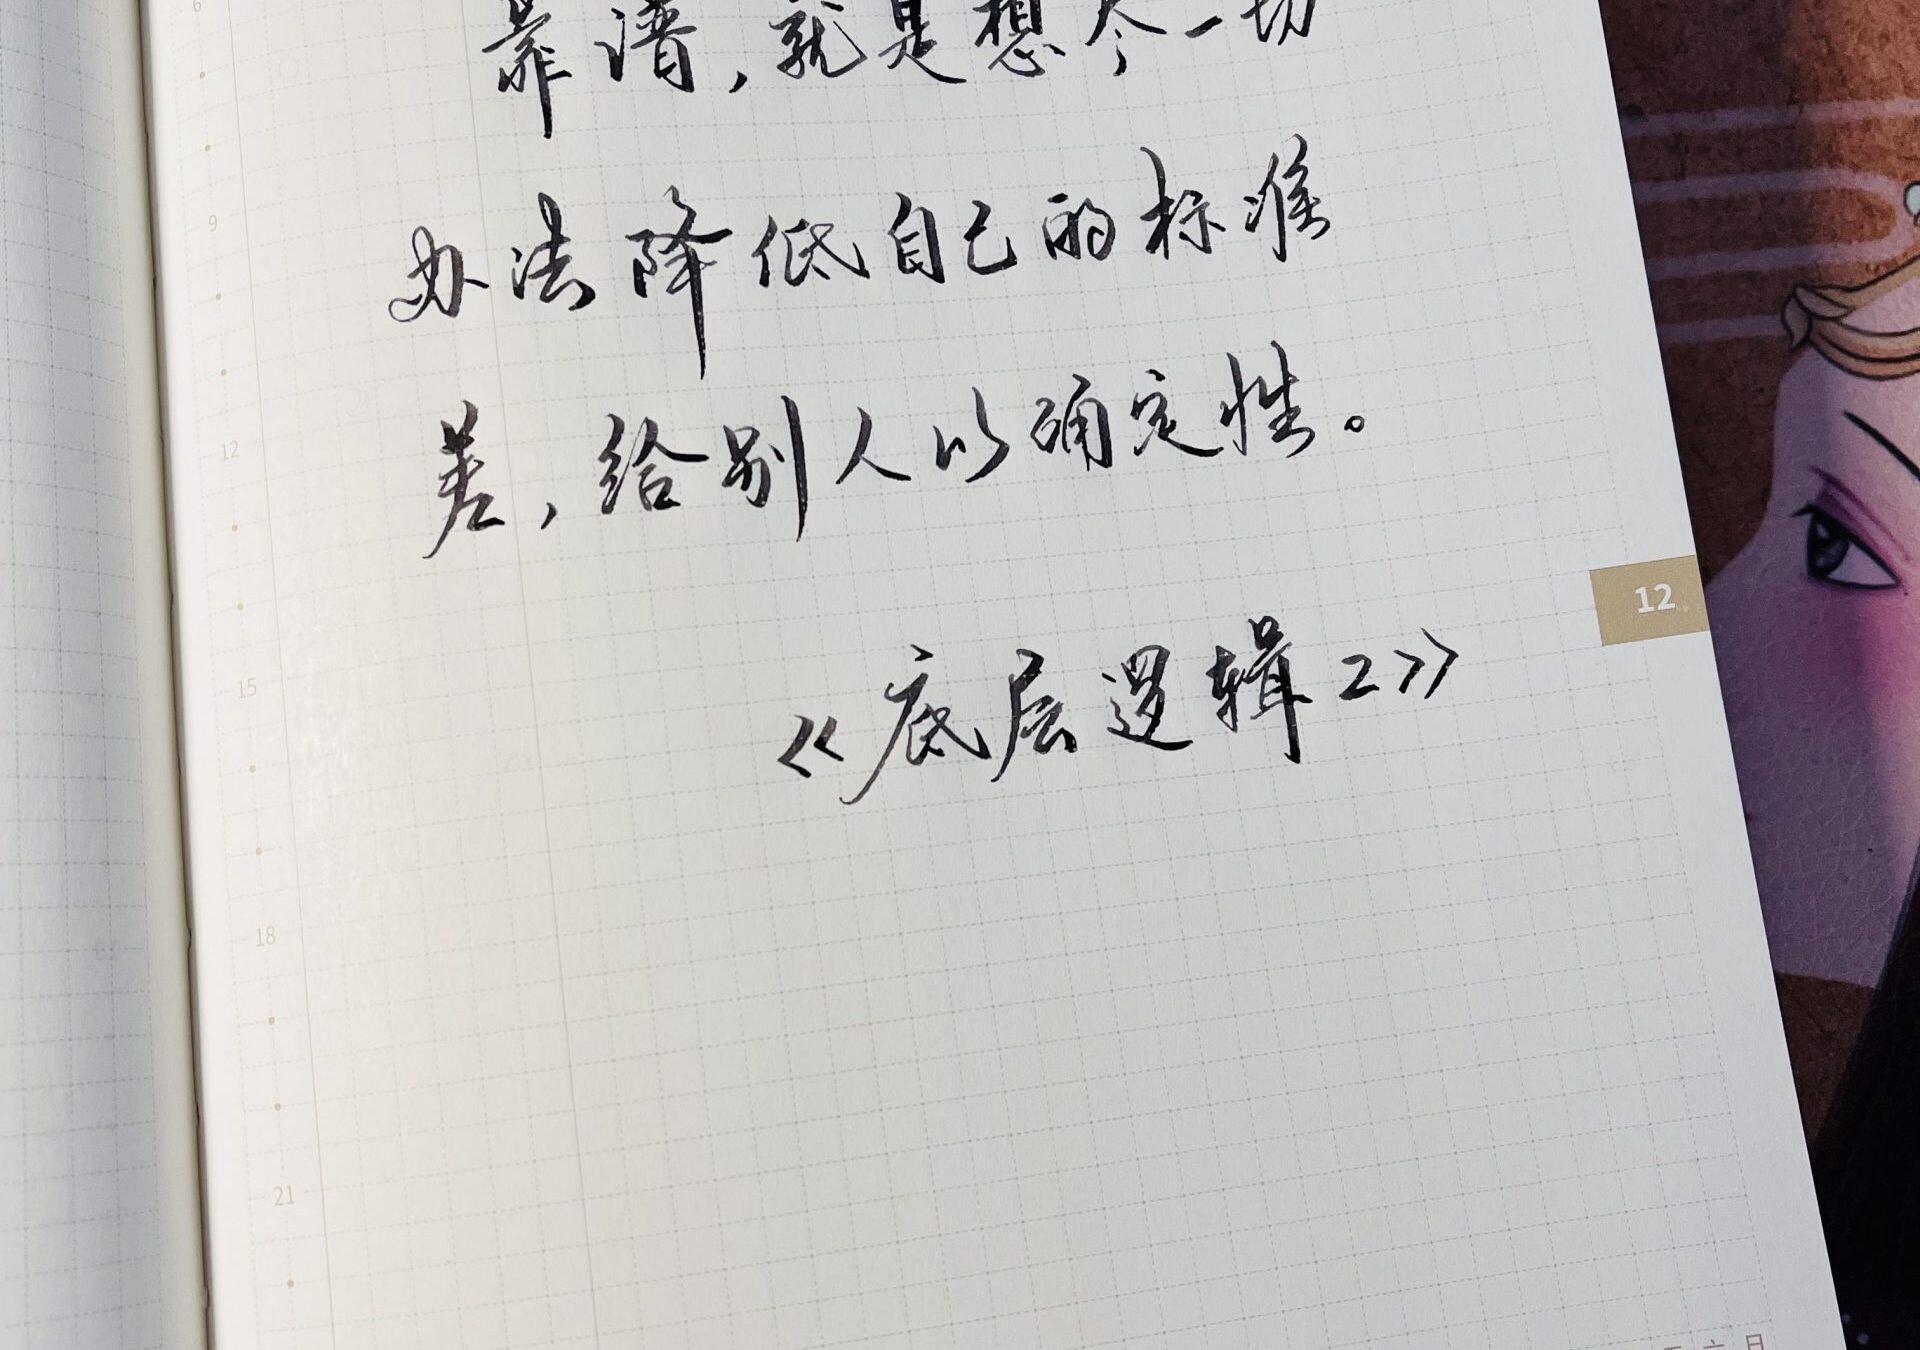 6
靠谱，就是想尽一切
9
办法降低自己的标准
差，给别人以确定性。
12
12
《底层逻辑2》
15
18
21